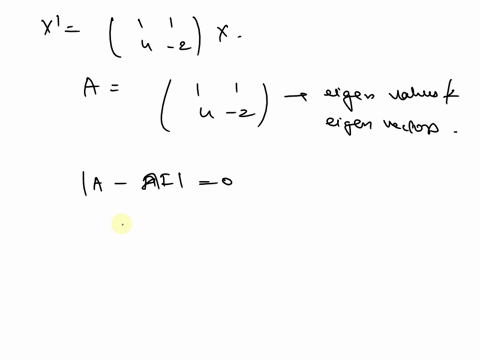 x' = ( 1 1 4 -2 ) x.
A = ( 1 1 4 -2 ) → eigen values &
eigen vectors.
|A - λI| = 0